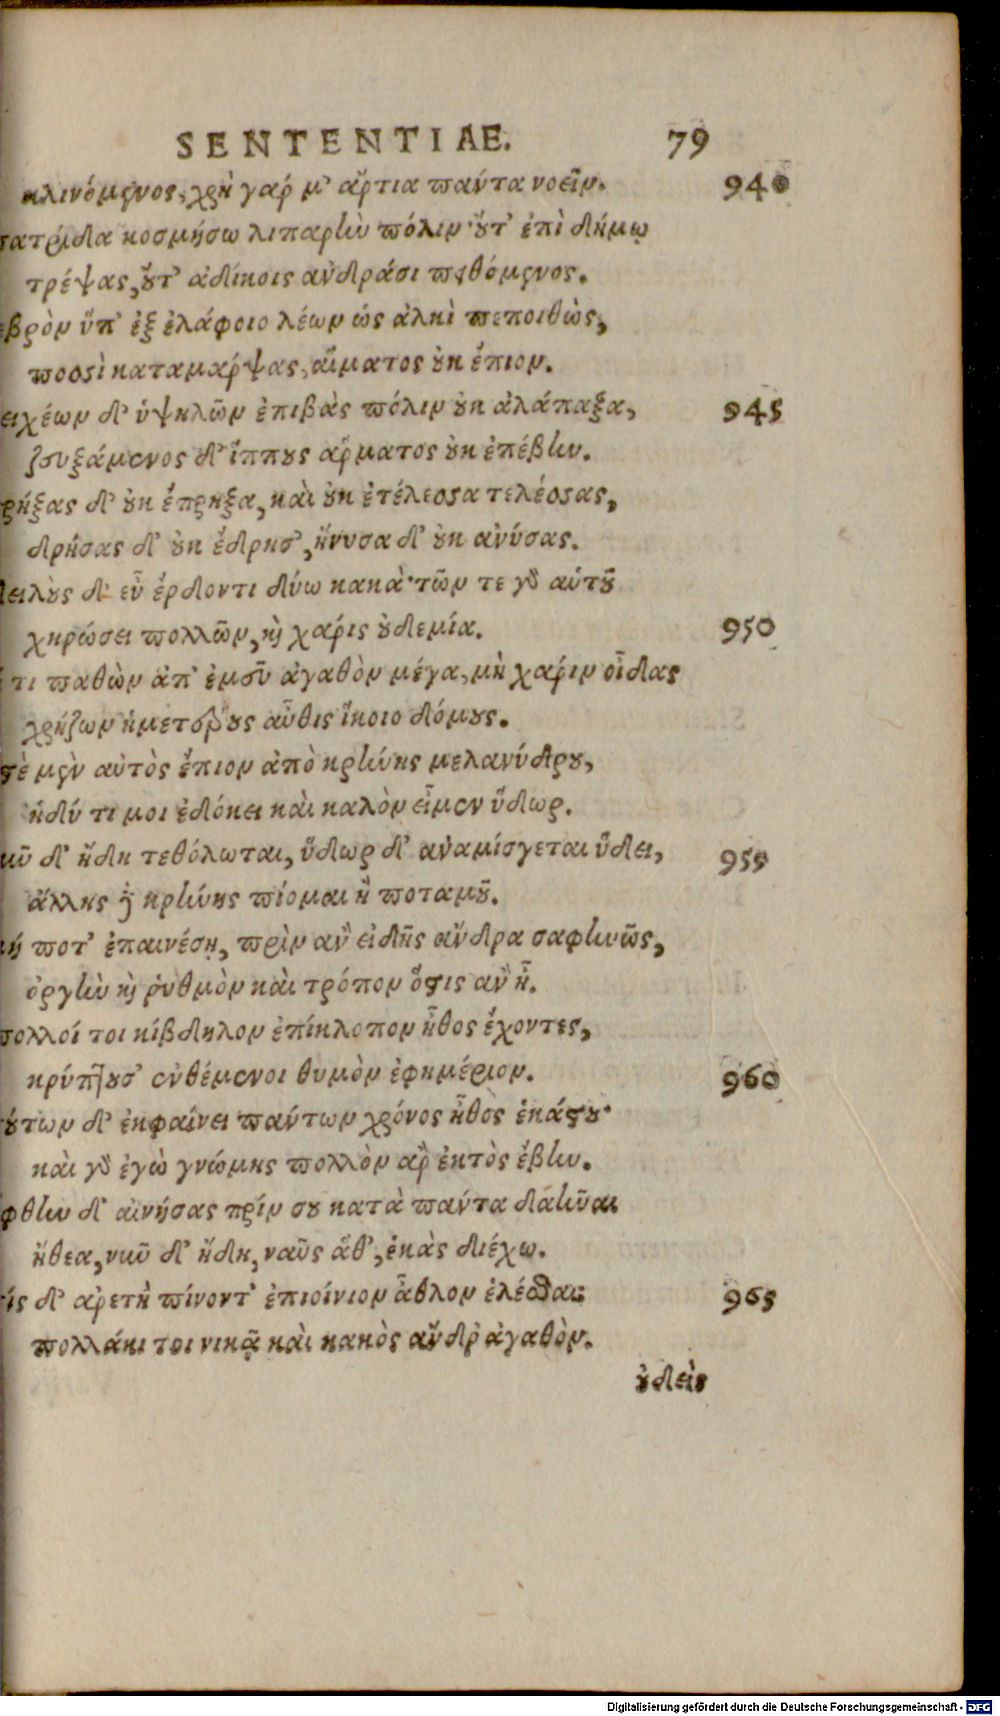 SENTENTIAE. 79
κλινόμενος, χρὴ γάρ μ' ἄρτια πάντα νοεῖν. 940
πατρίδα κοσμήσω λιπαρὴν πόλιν· οὔτ' ἐπὶ δήμῳ
τρέψας, οὔτ' ἀδίκοις ἀνδράσι πειθόμενος.
εβρὸν ὕπ' ἐξ ἐλάφοιο λέων ὡς ἀλκὶ πεποιθὼς,
ποσσὶ καταμάρψας, αἵματος οὐκ ἔπιον.
ειχέων δ' ὑψηλῶν ἐπιβὰς πόλιν οὐκ ἀλάπαξα, 945
ζευξάμενος δ' ἵππους ἅρματος οὐκ ἐπέβην.
ρήξας δ' οὐκ ἔπρηξα, καὶ οὐκ ἐτέλεσσα τελέσσας,
δρήσας δ' οὐκ ἔδρησ', ἤνυσα δ' οὐκ ἀνύσας.
δειλοὺς δ' εὖ ἔρδοντι δύω κακὰ· τῶν τε γὸ αὐτοῦ
χηρώσει πολλῶν, καὶ χάρις οὐδεμία. 950
τι παθὼν ἀπ' ἐμεῦ ἀγαθὸν μέγα, μὴ χάριν οἶδας
χρῄζων ἡμετέρους αὖθις ἵκοιο δόμους.
στὲ μὲν αὐτὸς ἔπιον ἀπὸ κρήνης μελανύδρου,
ἡδύ τι μοι ἐδόκει καὶ καλὸν εἶμεν ὕδωρ.
νῦ δ' ἤδη τεθόλωται, ὕδωρ δ' ἀναμίσγεται ὕδει, 955
ἄλλης δὴ κρήνης πίομαι ἢ ποταμοῦ.
μή ποτ' ἐπαινέσῃ, πρὶν ἂν εἰδῇς ἄνδρα σαφηνῶς,
ὀργὴν καὶ ῥυθμὸν καὶ τρόπον ὅστις ἂν ᾖ.
πολλοί τοι κίβδηλον ἐπίκλοπον ἦθος ἔχοντες,
κρύπτουσ' ἐνθέμενοι θυμὸν ἐφημέριον. 960
τούτων δ' ἐκφαίνει πάντων χρόνος ἦθος ἑκάστου·
καὶ γὸ ἐγὼ γνώμης πολλὸν ἂρ ἐκτὸς ἔβην.
φθην δ' αἰνήσας πρίν σου κατὰ πάντα δαῆναι
ἤθεα, νῦ δ' ἤδη, ναῦς ἅθ', ἑκὰς διέχω.
τίς δ' ἀρετὴ πίνοντ' ἐπιοίνιον ἆθλον ἑλέσθαι; 965
πολλάκι τοι νικᾷ καὶ κακὸς ἄνδρ' ἀγαθόν.
οὐδεὶς
Digitalisierung gefördert durch die Deutsche Forschungsgemeinschaft - DFG